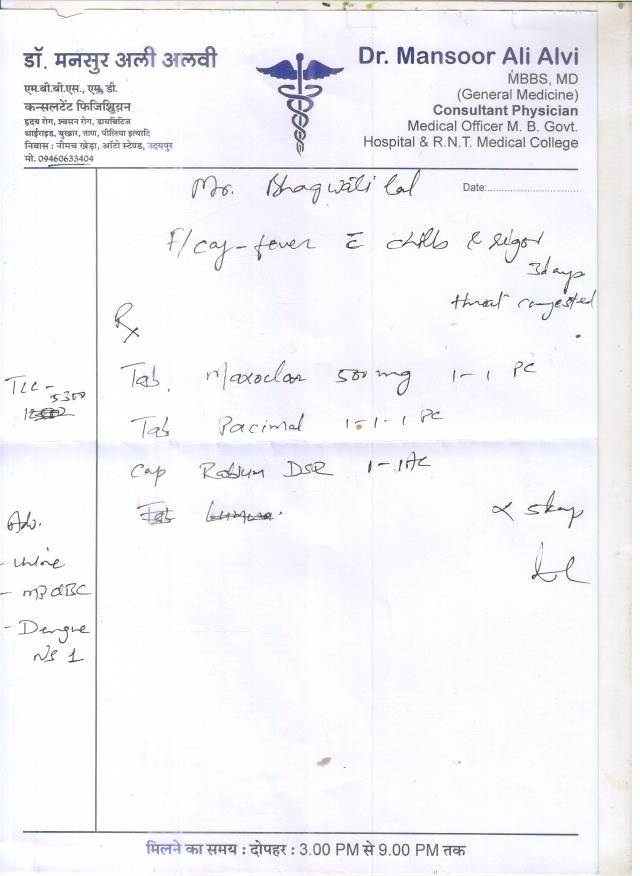 डॉ. मनसुर अली अलवी
एम.बी.बी.एस., एम. डी.
कन्सलटेंट फिजिशियन
हृदय रोग, श्वसन रोग, डायबिटिज
थाईराइड, बुखार, ताण, पीलिया इत्यादि
निवास : नीमच खेड़ा, ऑटो स्टेण्ड, उदयपुर
मो. 09460633404
Dr. Mansoor Ali Alvi
MBBS, MD
(General Medicine)
Consultant Physician
Medical Officer M. B. Govt.
Hospital & R.N.T. Medical College
Mr. Bhagwati Lal
Date:
fever c̄ chills & rigor
3 days
throat congested
Rx
Tab. Maxoclar 500 mg 1-1 PC
Tab Pacimol 1-1-1 PC
Cap Rabium DSR 1-1 AC
Tab
TLC - 5300
Adv.
- Urine
- MP
- Dengue
NS 1
मिलने का समय : दोपहर : 3.00 PM से 9.00 PM तक